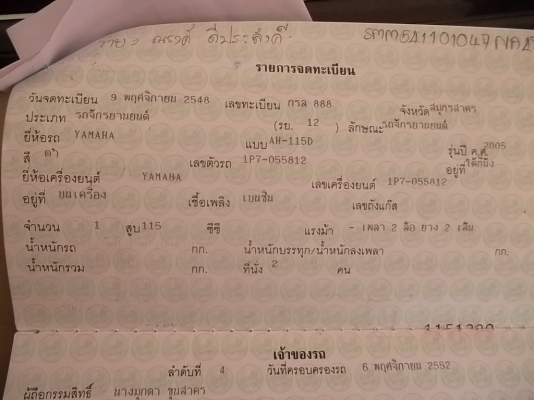 ณรงค์ ดีประสงค์ SMM541101047
รายการจดทะเบียน
วันจดทะเบียน 9 พฤศจิกายน 2548 เลขทะเบียน กรล 888 จังหวัดสมุทรสาคร
ประเภท รถจักรยานยนต์ (รย. 12 ) ลักษณะรถจักรยานยนต์
ยี่ห้อรถ YAMAHA แบบ AH-115D รุ่นปี ค.ศ. 2005
สี ดำ เลขตัวรถ 1P7-055812 อยู่ที่ ใต้ที่นั่ง
ยี่ห้อเครื่องยนต์ YAMAHA เลขเครื่องยนต์ 1P7-055812
อยู่ที่ บนเครื่อง เชื้อเพลิง เบนซิน เลขถังแก๊ส
จำนวน 1 สูบ 115 ซีซี แรงม้า - เพลา 2 ล้อ ยาง 2 เส้น
น้ำหนักรถ กก. น้ำหนักบรรทุก/น้ำหนักลงเพลา กก.
น้ำหนักรวม กก. ที่นั่ง 2 คน
เจ้าของรถ
ลำดับที่ 4 วันที่ครอบครองรถ 6 พฤศจิกายน 2552
ผู้ถือกรรมสิทธิ์ นางมุกดา ขุนสาคร